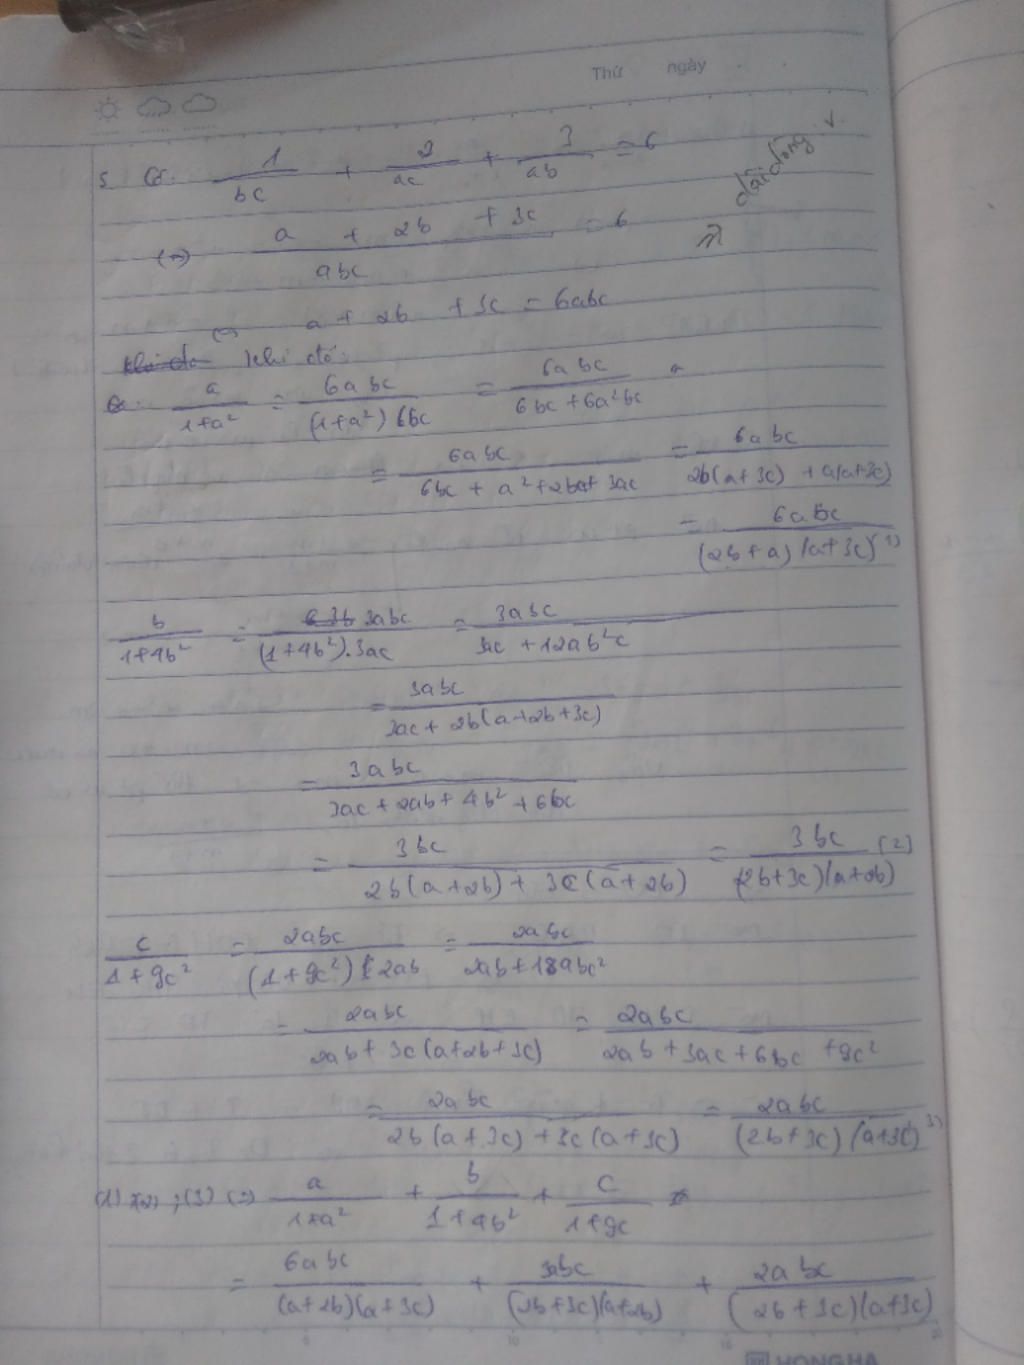 Thứ ngày
5 Có: 1/bc + 2/ac + 3/ab = 6
(=) (a + 2b + 3c)/abc = 6
dài dòng.
(=) a + 2b + 3c = 6abc
khi đó:
a/(1+a²) = 6abc/((1+a²)6bc) = 6abc/(6bc+6a²bc)
= 6abc/(6bc + a²+2ba+3ac) = 6abc/(2b(a+3c) + a(a+3c))
= 6abc/((2b+a)(a+3c)) (1)
b/(1+4b²) = 3abc/((1+4b²).3ac) = 3abc/(3ac + 12ab²c)
= 3abc/(3ac + 2b(a+2b+3c))
= 3abc/(3ac + 2ab + 4b² + 6bc)
= 3bc/(2b(a+2b) + 3c(a+2b)) = 3bc/((2b+3c)(a+2b)) (2)
c/(1+9c²) = 2abc/((1+9c²)2ab) = 2abc/(2ab+18abc²)
= 2abc/(2ab + 3c(a+2b+3c)) = 2abc/(2ab + 3ac + 6bc + 9c²)
= 2abc/(2b(a+3c) + 3c(a+3c)) = 2abc/((2b+3c)(a+3c)) (3)
(1), (2), (3) (=) a/(1+a²) + b/(1+4b²) + c/(1+9c)
= 6abc/((a+2b)(a+3c)) + 3abc/((2b+3c)(a+2b)) + 2abc/((2b+3c)(a+3c))
5 10 15 20
HONG HA